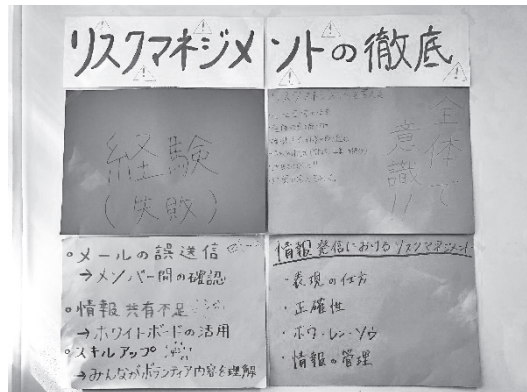 リスクマネジメントの徹底
経験
(失敗)
全体で
意識!!
・メールの誤送信
→メンバー間の確認
・情報共有不足
→ホワイトボードの活用
・スキルアップ
→みんながボランティア内容を理解
情報発信におけるリスクマネジメント
・表現の仕方
・正確性
・ホウ・レン・ソウ
・情報の管理